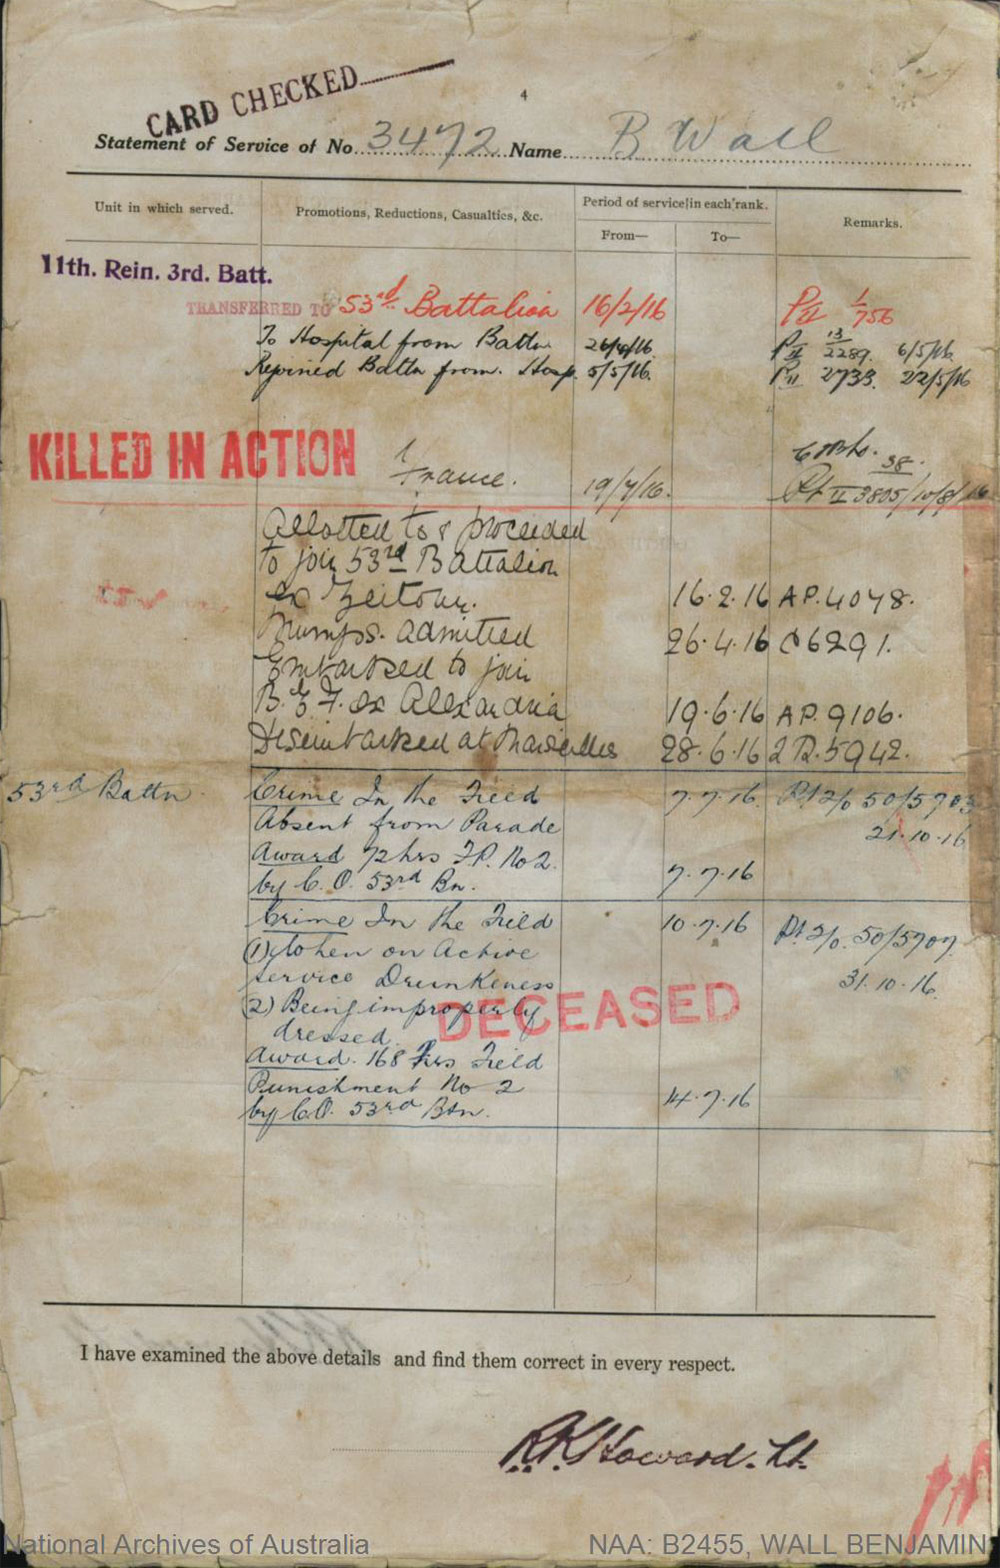 CARD CHECKED
4
Statement of Service of No. 3472 Name B Wall
Unit in which served. Promotions, Reductions, Casualties, &c. Period of service in each rank. Remarks.
From— To—
11th. Rein. 3rd. Batt.
TRANSFERRED TO 53rd Battalion 16/2/16 PII 1/756
To Hospital from Battn 26/4/16. PII 13/2289. 6/5/16
Rejoined Battn from Hosp. 5/5/16. PII 2733. 22/5/16
KILLED IN ACTION
France. 19/7/16. 38
Pt II 3805/10/8/16
Allotted to & proceeded
to join 53rd Battalion
ex Zeitoun. 16.2.16 AP.4078.
Mumps. admitted 26.4.16 C6291.
Embarked to join
B.E.F. ex Alexandria 19.6.16 AP.9106.
Disembarked at Marseilles 28.6.16 2R.5942.
53rd Battn Crime In the Field 7.7.16 Pt 2/o 50/5703
Absent from Parade 21.10.16
Award 72 hrs F.P. No 2.
by C.O. 53rd Bn. 7.7.16
Crime In the Field 10.7.16 Pt 2/o. 50/5707
(1) When on Active
service Drunkeness 31.10.16.
(2) Being improperly
DECEASED
dressed.
Award. 168 hrs Field
Punishment No 2
by C.O. 53rd Btn. 14.7.16
I have examined the above details and find them correct in every respect.
R.K. Howard. Lt.
National Archives of Australia NAA: B2455, WALL BENJAMIN